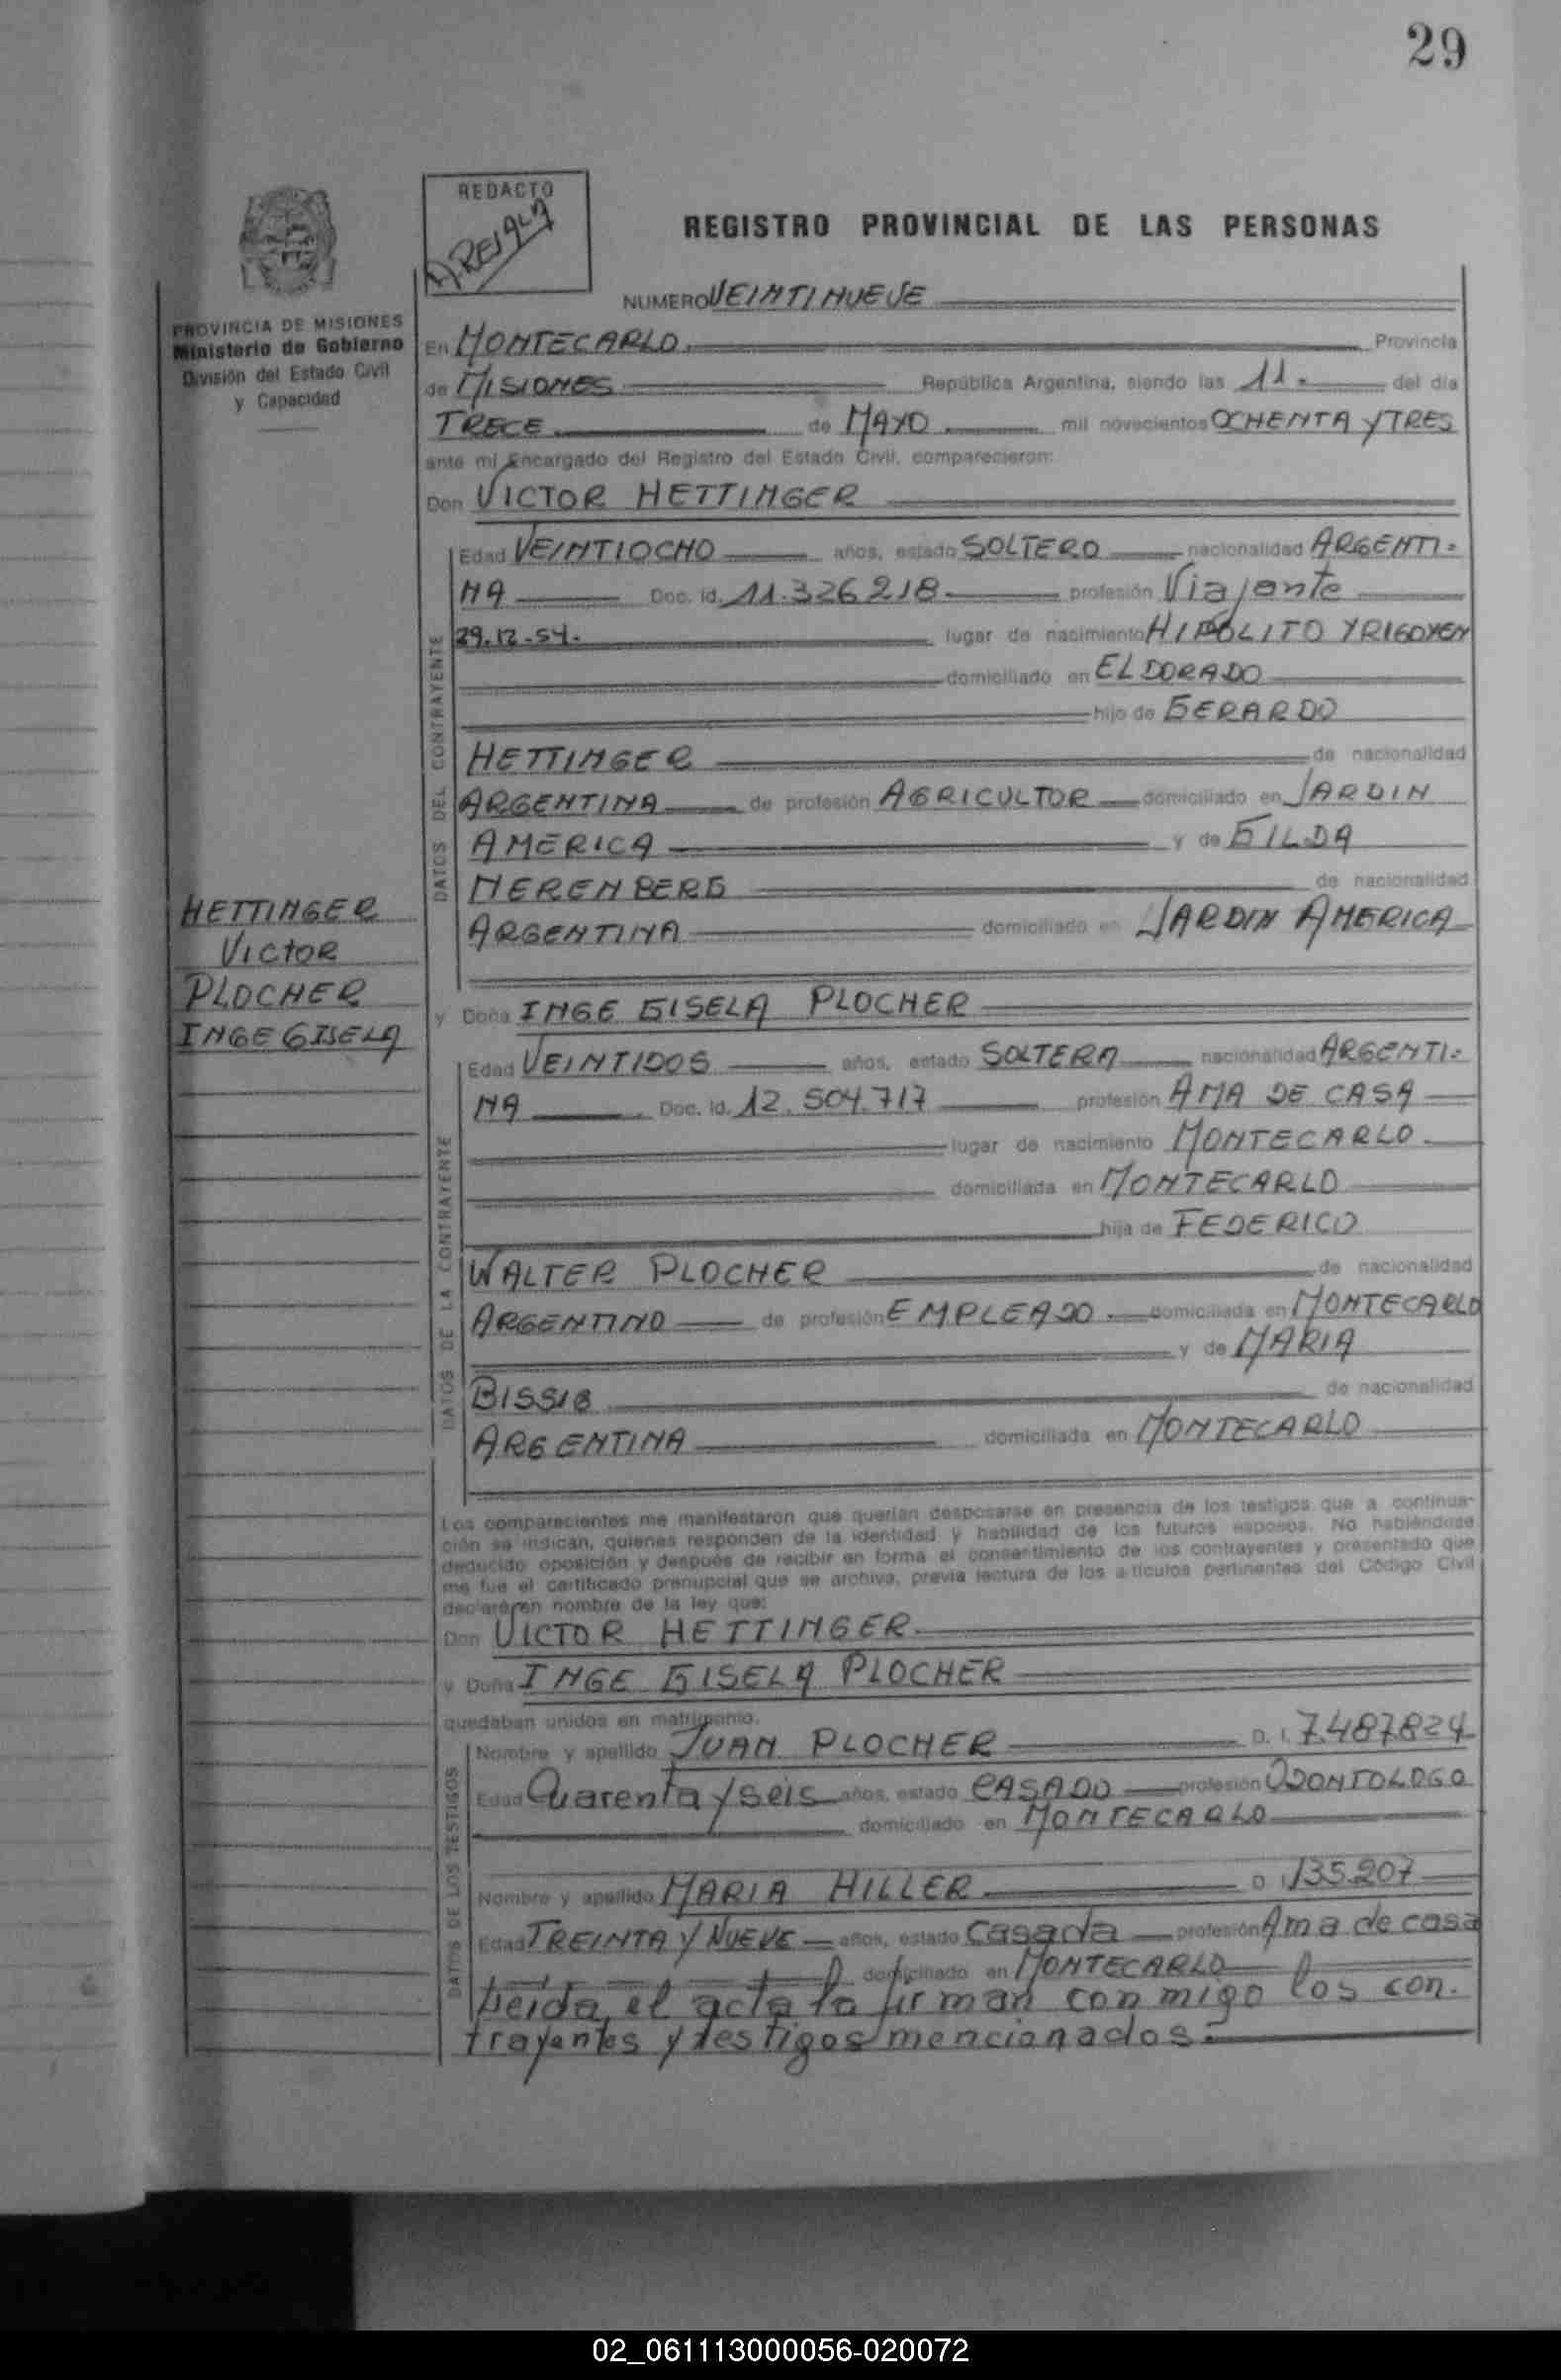 29
REDACTO
REGISTRO PROVINCIAL DE LAS PERSONAS
NUMERO VEINTINUEVE
PROVINCIA DE MISIONES
Ministerio de Gobierno
División del Estado Civil
y Capacidad
En MONTECARLO. Provincia
de MISIONES República Argentina, siendo las 11. del día
TRECE de MAYO mil novecientos OCHENTA Y TRES
ante mi Encargado del Registro del Estado Civil, comparecieron:
Don VICTOR HETTINGER
DATOS DEL CONTRAYENTE
Edad VEINTIOCHO años, estado SOLTERO nacionalidad ARGENTI-
NA Doc. Id. 11.326.218 profesión Viajante
29.12.54. lugar de nacimiento HIPOLITO YRIGOYEN
domiciliado en ELDORADO
hijo de GERARDO
HETTINGER de nacionalidad
ARGENTINA de profesión AGRICULTOR domiciliado en JARDIN
AMERICA y de GILDA
MERENBERG de nacionalidad
ARGENTINA domiciliado en JARDIN AMERICA
HETTINGER
VICTOR
PLOCHER
INGE GISELA
y Doña INGE GISELA PLOCHER
DATOS DE LA CONTRAYENTE
Edad VEINTIDOS años, estado SOLTERA nacionalidad ARGENTI-
NA Doc. Id. 12.504.717 profesión AMA DE CASA
lugar de nacimiento MONTECARLO.
domiciliada en MONTECARLO
hija de FEDERICO
WALTER PLOCHER de nacionalidad
ARGENTINO de profesión EMPLEADO. domiciliada en MONTECARLO
y de MARIA
BISSIG de nacionalidad
ARGENTINA domiciliada en MONTECARLO
Los comparecientes me manifestaron que querían desposarse en presencia de los testigos que a continua-
ción se indican, quienes responden de la identidad y habilidad de los futuros esposos. No habiéndose
deducido oposición y después de recibir en forma el consentimiento de los contrayentes y presentado que
me fue el certificado prenupcial que se archiva, previa lectura de los artículos pertinentes del Código Civil
declaré en nombre de la ley que:
Don VICTOR HETTINGER.
y Doña INGE GISELA PLOCHER
quedaban unidos en matrimonio.
DATOS DE LOS TESTIGOS
Nombre y apellido JUAN PLOCHER D. I. 7.487.824
Edad Quarenta y seis años, estado CASADO profesión ODONTOLOGO
domiciliado en MONTECARLO
Nombre y apellido MARIA HILLER D. I. 135.207
Edad TREINTA Y NUEVE años, estado Casada profesión Ama de casa
domiciliado en MONTECARLO
Leida el acta la firman conmigo los con.
trayentes y testigos mencionados.
02_061113000056-020072